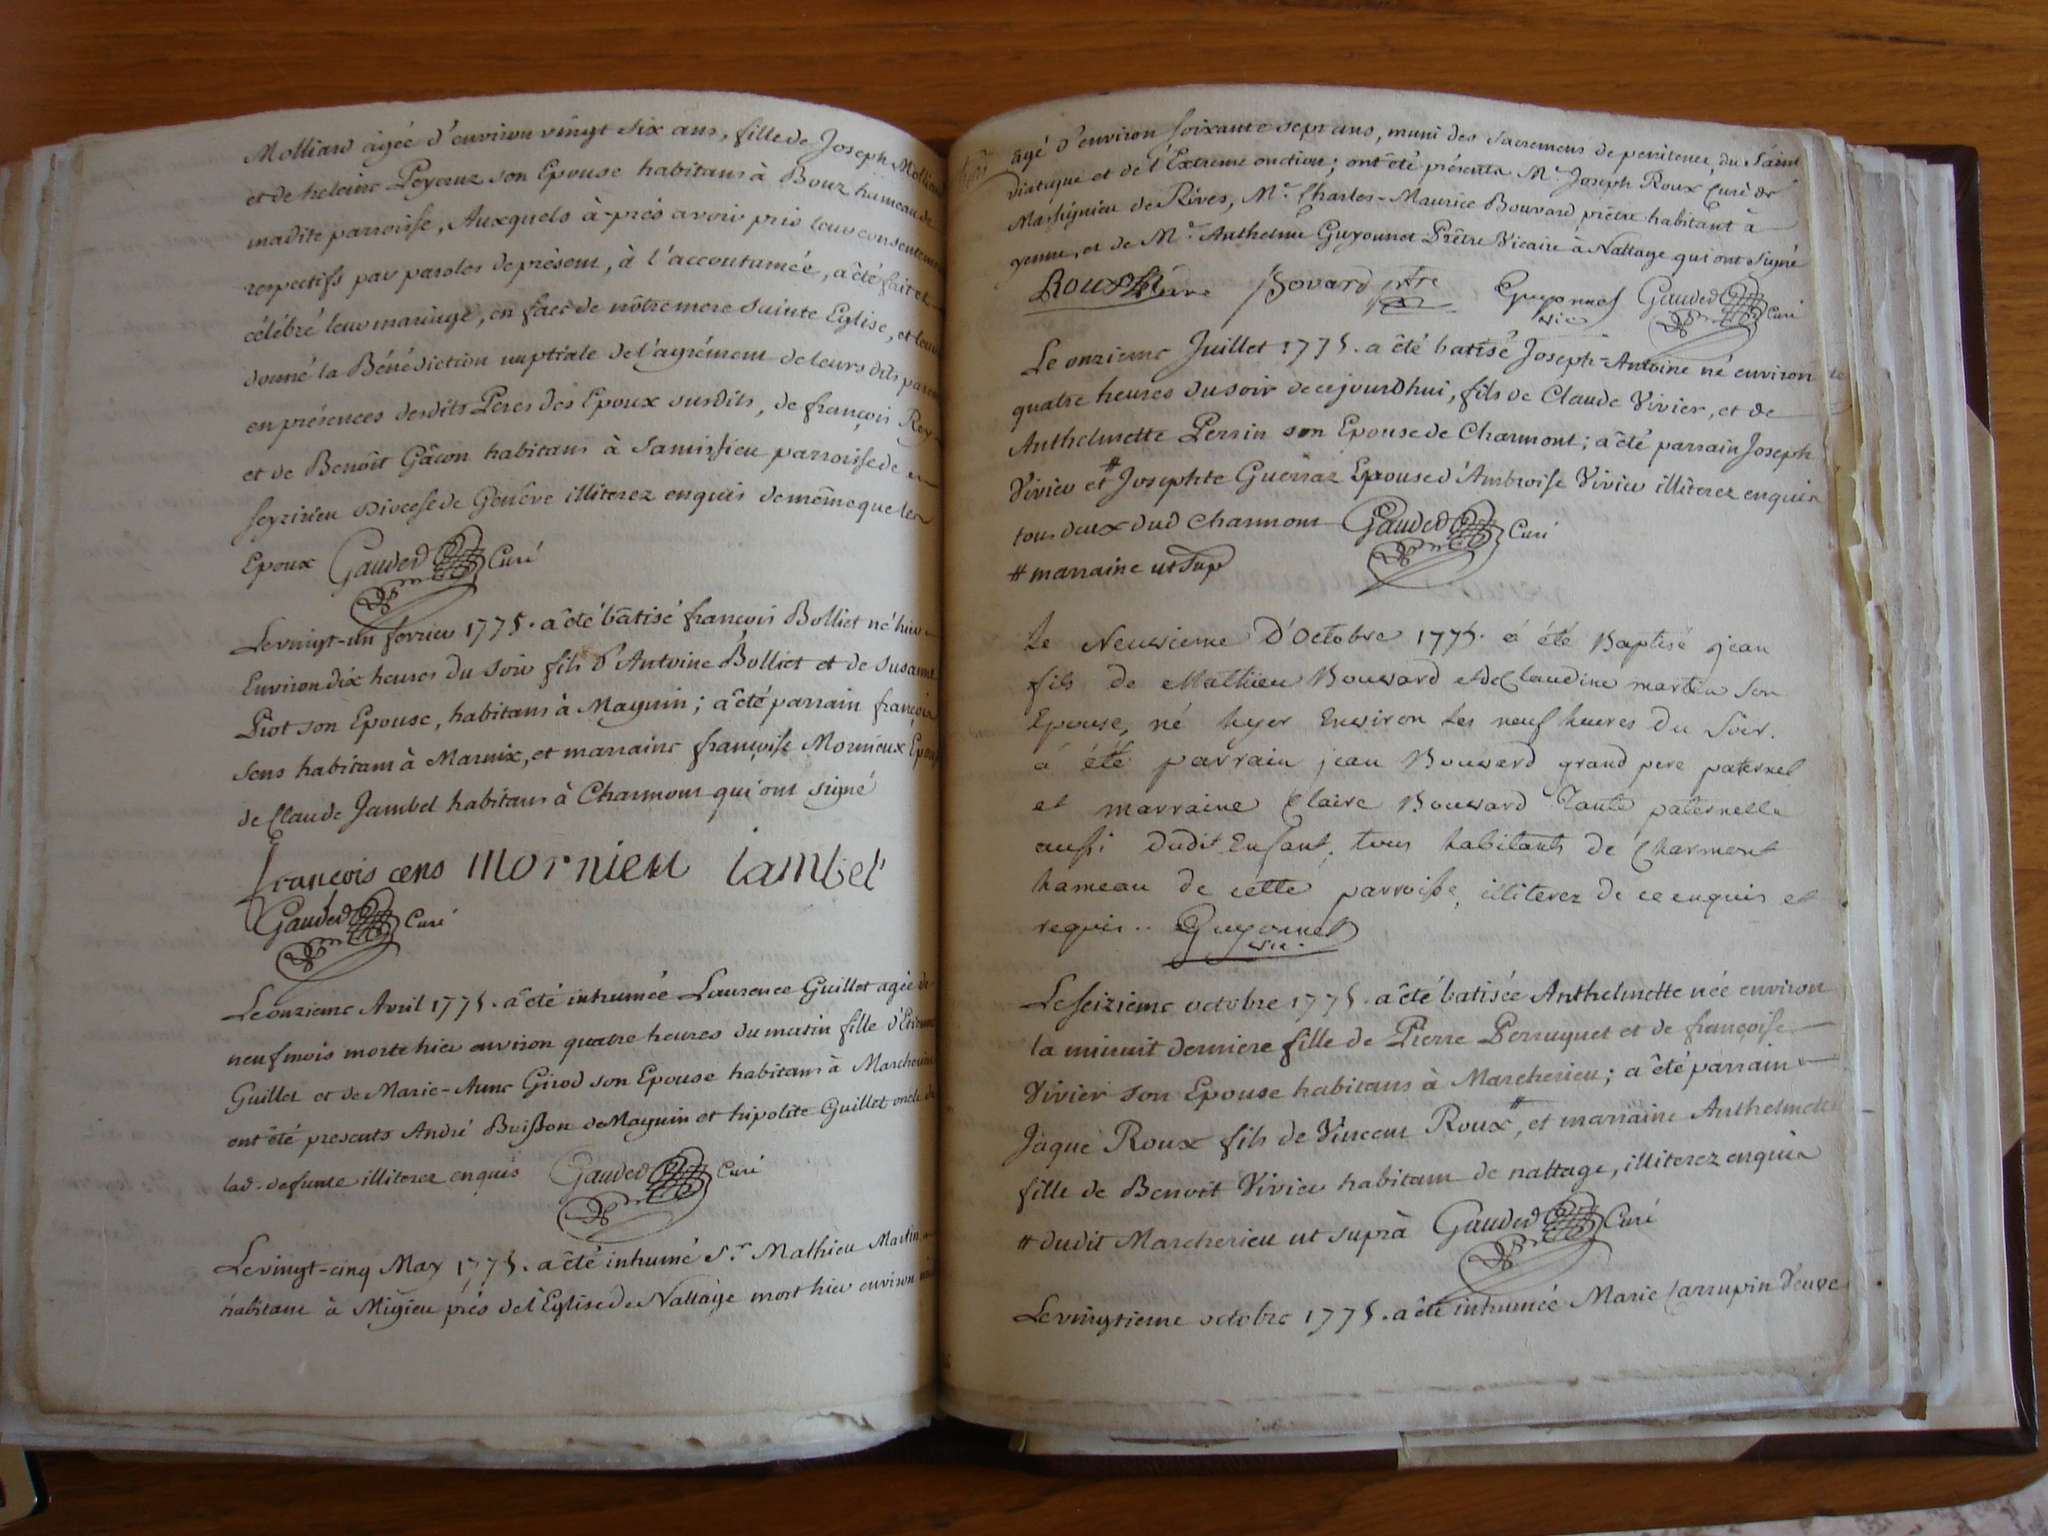 Molliard agée d'environ vingt six ans, fille de Joseph Molliard
et de heleine Peysenz son Epouse habitans à Bouz hameau de
madite parroisse, Auxquels à-prés avoir pris leur consentement
respectifs par paroles de présent, à l'accoutumée, a êté fait et
célébré leur mariage, en face de nôtre mere sainte Eglise, et leur
donné la Bénédiction nuptiale de l'agrément de leurs dits parens
en présences desdits Peres des Epoux susdits, de françois Rey
et de Benoît Gâcon habitans à Samissieu parroisse de
seyzirieu Diocese de Genêve illiterez enquis de même que les
Epoux Gauded Curé
Le vingt-un fevrier 1775. a êté bâtisé françois Bolliet né hier
Environ dix heures du soir fils d'Antoine Bolliet et de Susanne
Piot son Epouse, habitans à Maynin; a êté parrain françois
sens habitant à Marnix, et marraine françoise Mornieux Epouse
de Claude Jambel habitans à Charmont qui ont signé
françois cens Mornieu Iambel
Gauded Curé
Le onzieme Avril 1775. a êté inhumée Laurence Guillet agée de
neuf mois morte hier environ quatre heures du matin fille d'Etienne
Guillet et de Marie-Anne Girod son Epouse habitans à Marcherieu
ont êté presents André Buisson de Maynin et hipolite Guillet oncle de
lad. defunte illiterez enquis Gauded Curé
Le vingt-cinq May 1775. a êté inhumé Sr. Mathieu Martin
habitant à Migieu prés de l'Eglise de Nattage mort hier environ
âgé d'environ soixante sept ans, muni des sacremens de penitence, du Saint
viatique et de l'Extreme onction; ont êté présents Mr. Joseph Roux Curé de
Massignieu de Rives, Mr. Charles-Maurice Bouvard prêtre habitant à
yenne, et de Mr. Anthelme Guyonnet Prêtre Vicaire à Nattage qui ont signé
Roux Bovard ptre Guyonnet vic Gauded Curé
Le onzieme Juillet 1775. a êté batisé Joseph-Antoine né environ
quatre heures du soir de cejourdhui, fils de Claude Vivier, et de
Anthelmette Perrin son Epouse de Charmont; a êté parrain Joseph
Vivier et # Josephte Guerraz Epouse d'Ambroise Vivier illiterez enquis
tous deux dud Charmont Gauded Curé
# marraine ut sup
Le Neuvieme D'Octobre 1775. á été Baptisé jean
fils de Mathieu Bouvard et de Claudine martin son
Epouse, né hyer Environ les neuf heures du Soir.
á été parrain jean Bouvard grand pere paternel
et marraine Claire Bouvard Tante paternelle
aussi dudit Enfant, tous habitants de Charmont
hameau de cette parroisse, illiterez de ce enquis et
requis.. Guyonnet vic.
Le seizieme octobre 1775. a êté batisée Anthelmette née environ
la minuit derniere fille de Pierre Perruquet et de françoise
Vivier son Epouse habitans à Marcherieu; a êté parrain
Jaque Roux fils de Vincent Roux #, et marraine Anthelmette
fille de Benoit Vivier habitant de nattage, illiterez enquis
# dudit Marcherieu ut suprà Gauded Curé
Le vingtieme octobre 1775. a êté inhumée Marie Carrupin Veuve